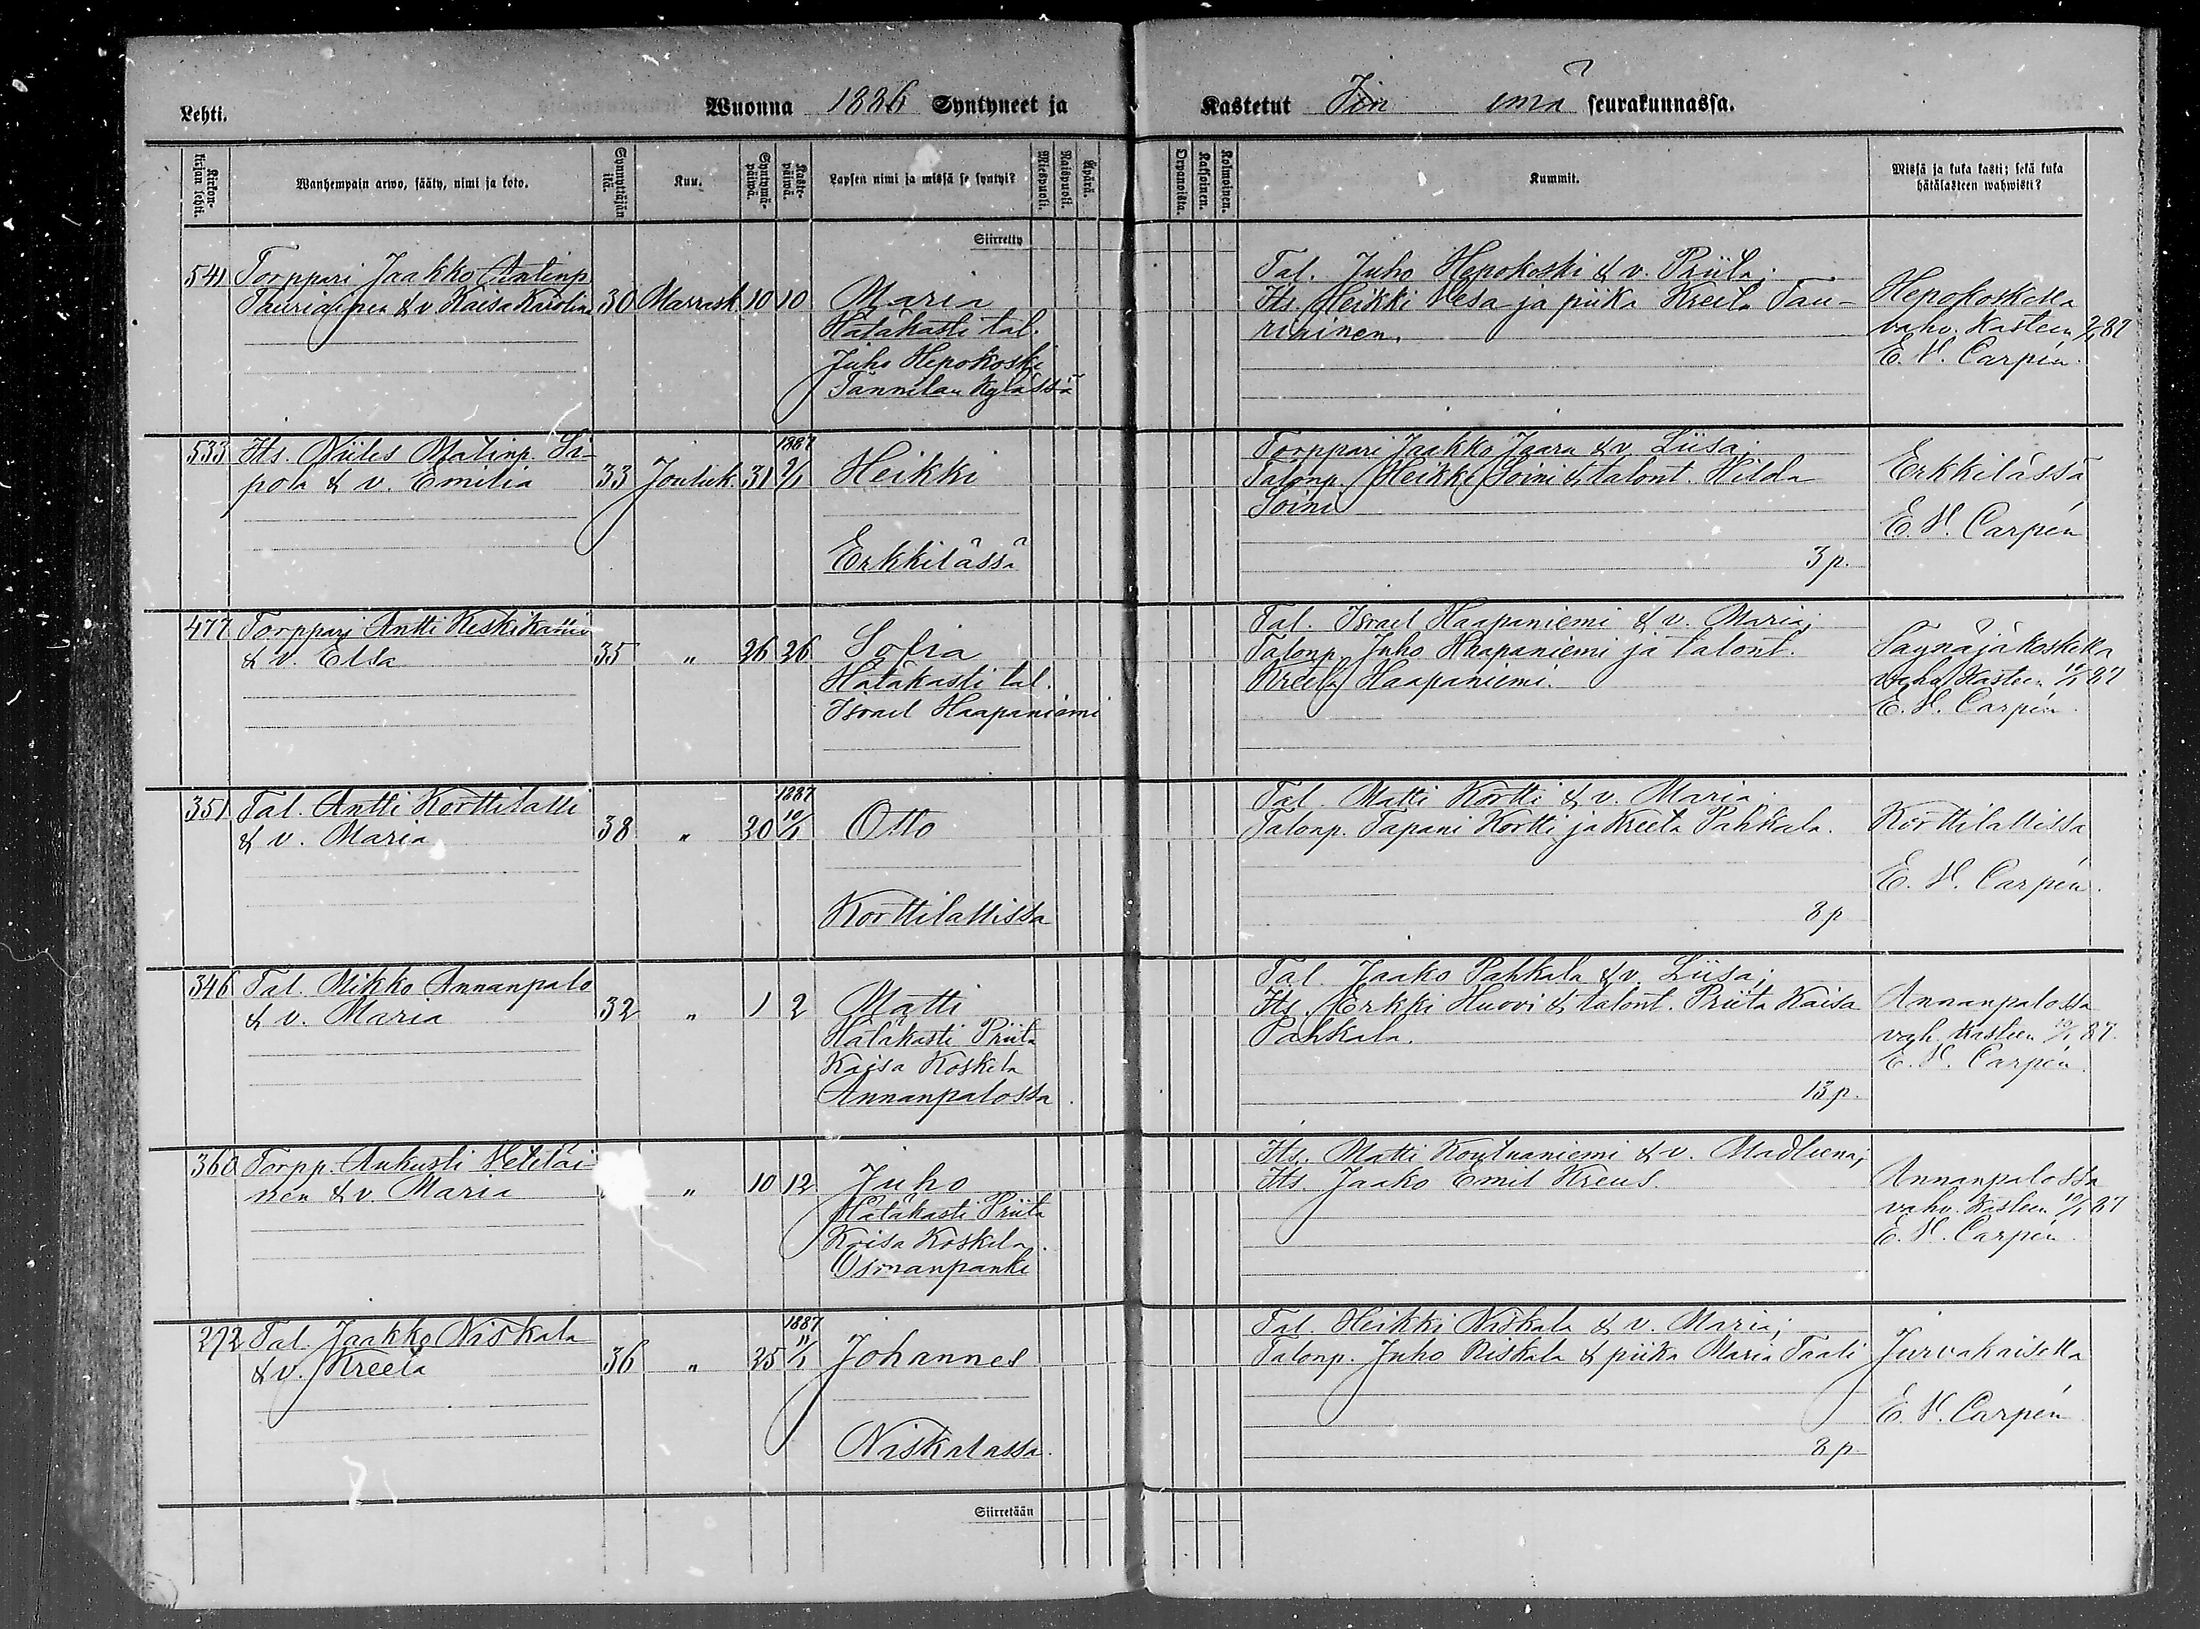 Lehti. Wuonna 1886 Syntyneet ja Kastetut Iin emä seurakunnassa.
Kirkonkirjan lehti. Wanhempain arwo, sääty, nimi ja koto. Synnyttäjän ikä. Kuu. Syntymäpäiwä. Kastepäiwä. Lapsen nimi ja missä se syntyi? Miespuoli. Naispuoli. Äpärä. Orpanoista. Kaksoinen. Kolmoinen. Kummit. Missä ja kuka kasti; sekä kuka hätäkasteen wahwisti?
Siirretty
541 Torppari Jaakko Antinp.
Tauriainen & v Kaisa Karolina 30 Marrask. 10 10 Maria
Hätäkasti tal.
Juho Hepokoski
Tannilan kylässä
Tal. Juho Hepokoski & v. Priita;
Its. Heikki Vesa ja piika Kreeta Tau-
riainen.
Hepokoskella
vahv. kasteen 87
E. V. Carpén.
533 Its. Niiles Matinp. Si-
pola & v. Emilia 33 Jouluk. 31 1887 2/1 Heikki
Erkkilässä
Torppari Jaakko Jaara & v. Liisa;
Talonp. Heikki Soini & talont. Hilda
Soini
3 p.
Erkkilässä
E. V. Carpén
477 Torppari Antti Keskikallio
& v. Elsa 35 " 26 26 Sofia
Hätäkasti tal.
Israel Haapaniemi
Tal. Israel Haapaniemi & v. Maria;
Talonp. Juho Haapaniemi ja talont.
Kreeta Haapaniemi.
vahv. kasteen 10/1 87
E. V. Carpén.
351 Tal. Antti Korttilatti
& v. Maria 38 " 20 1887 10/1 Otto
Korttilatissa
Tal. Matti Kortti & v. Maria.
Talonp. Tapani Kortti ja Kreeta Pahkala.
8 p
Korttilatissa
E. V. Carpén.
346 Tal. Mikko Annanpalo
& v. Maria 32 " 1 2 Matti
Hätäkasti Priita
Kaisa Koskela
Annanpalossa.
Tal. Jaako Pahkala & v. Liisa;
Its. Erkki Huovi & talont. Priita Kaisa
Pahkala.
13 p.
Annanpalossa
vahv. kasteen 10/1 87.
E. V. Carpén.
360 Torpp. Aukusti Heteläi-
nen & v. Maria " 10 12 Juho
Hätäkasti Priita
Kaisa Koskela.
Osmanpanki
Its. Matti Koutuaniemi & v. Madleena;
Its. Jaako Emil Kreus.
Annanpalossa
vahv. kasteen 10/1 87
E. V. Carpén.
272 Tal. Jaakko Niskala
& v. Kreeta 36 " 25 1887 11/1 Johannes
Niskalassa.
Tal. Heikki Niskala & v. Maria;
Talonp. Juho Niskala & piika Maria Taali
8 p.
Jurvakaisella
E. V. Carpén
Siirretään